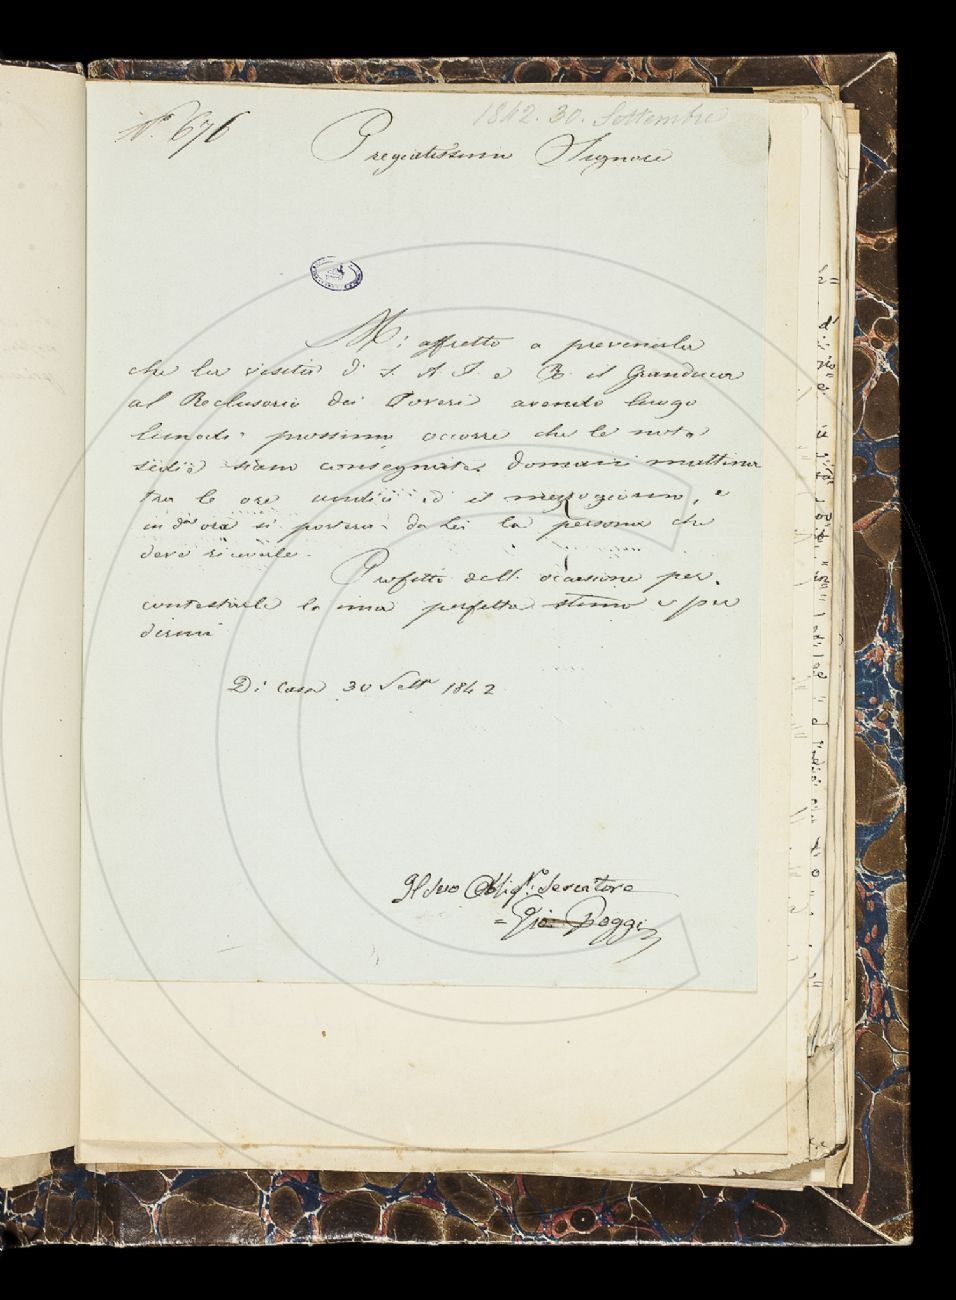 N.º 676
1842. 30. Settembre
Pregiatissimo Signore
Mi affretto a prevenirla
che la visita di S. A. I. e R. il Granduca
al Reclusorio dei Poveri avendo luogo
lunedì prossimo occorre che le note
sedie siano consegnate domani mattina
tra le ore undici ed il mezzogiorno, e
in dta ora si porterà da Lei la persona che
deve riceverle.
Profitto dell' occasione per
contestarle la mia perfetta stima e per
dirmi
Di Casa 30 Settr 1842
Il Suo Obbligmo Servitore
= Gio. Poggi